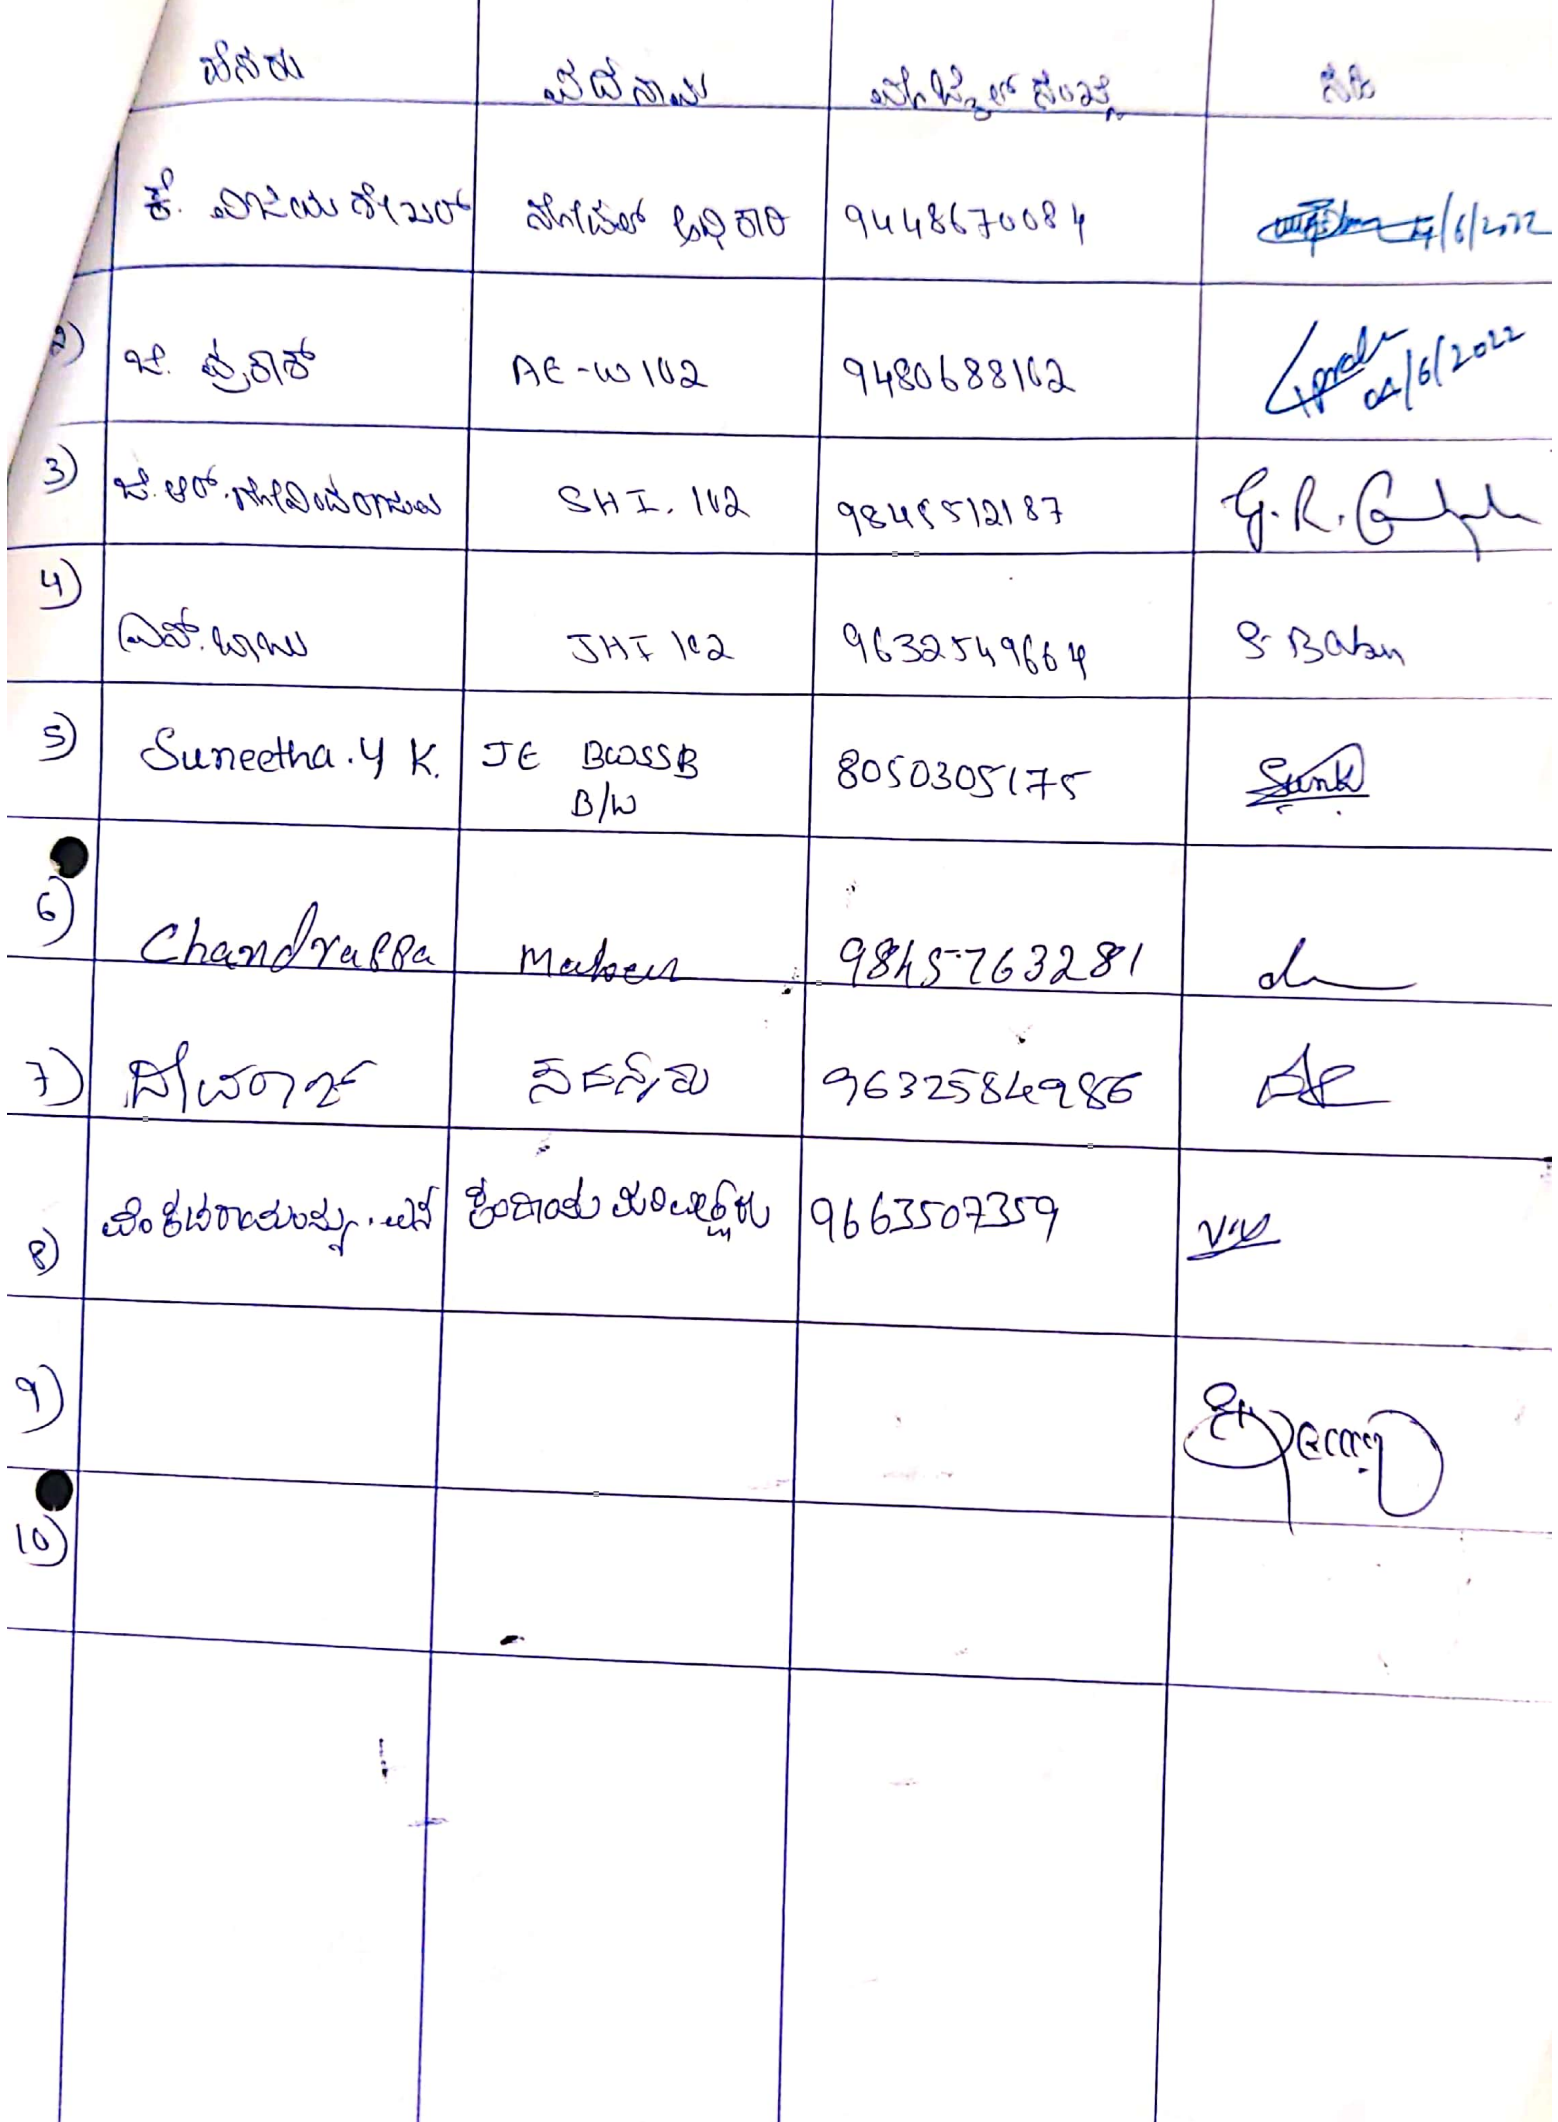 ಹೆಸರು ಪದನಾಮ ಮೊಬೈಲ್ ಸಂಖ್ಯೆ ಸಹಿ
ಕೆ. ವಿಜಯ ಶೇಖರ್ ನೋಡಲ್ ಅಧಿಕಾರಿ 9448670084 /6/2022
2) ಜಿ. ಪ್ರಕಾಶ್ AE-W102 9480688102 02/6/2022
3) ಜಿ.ಆರ್.ಗೋವಿಂದರಾಜುಲು SHI. 102 9845512187 G.R.
4) ಎಸ್.ಬಾಬು JHI 102 9632549664 S. Babu
5) Suneetha.Y K. JE BWSSB 8050305175
B/W
6) Chandrappa 9845763281
7) ದೇವರಾಜ್ ಸದಸ್ಯರು 9632584986
8) ವೆಂಕಟರಾಯಪ್ಪ. ಎನ್ ಕಂದಾಯ ಪರಿವೀಕ್ಷಕರು 9663507359 V.N
9)
10)